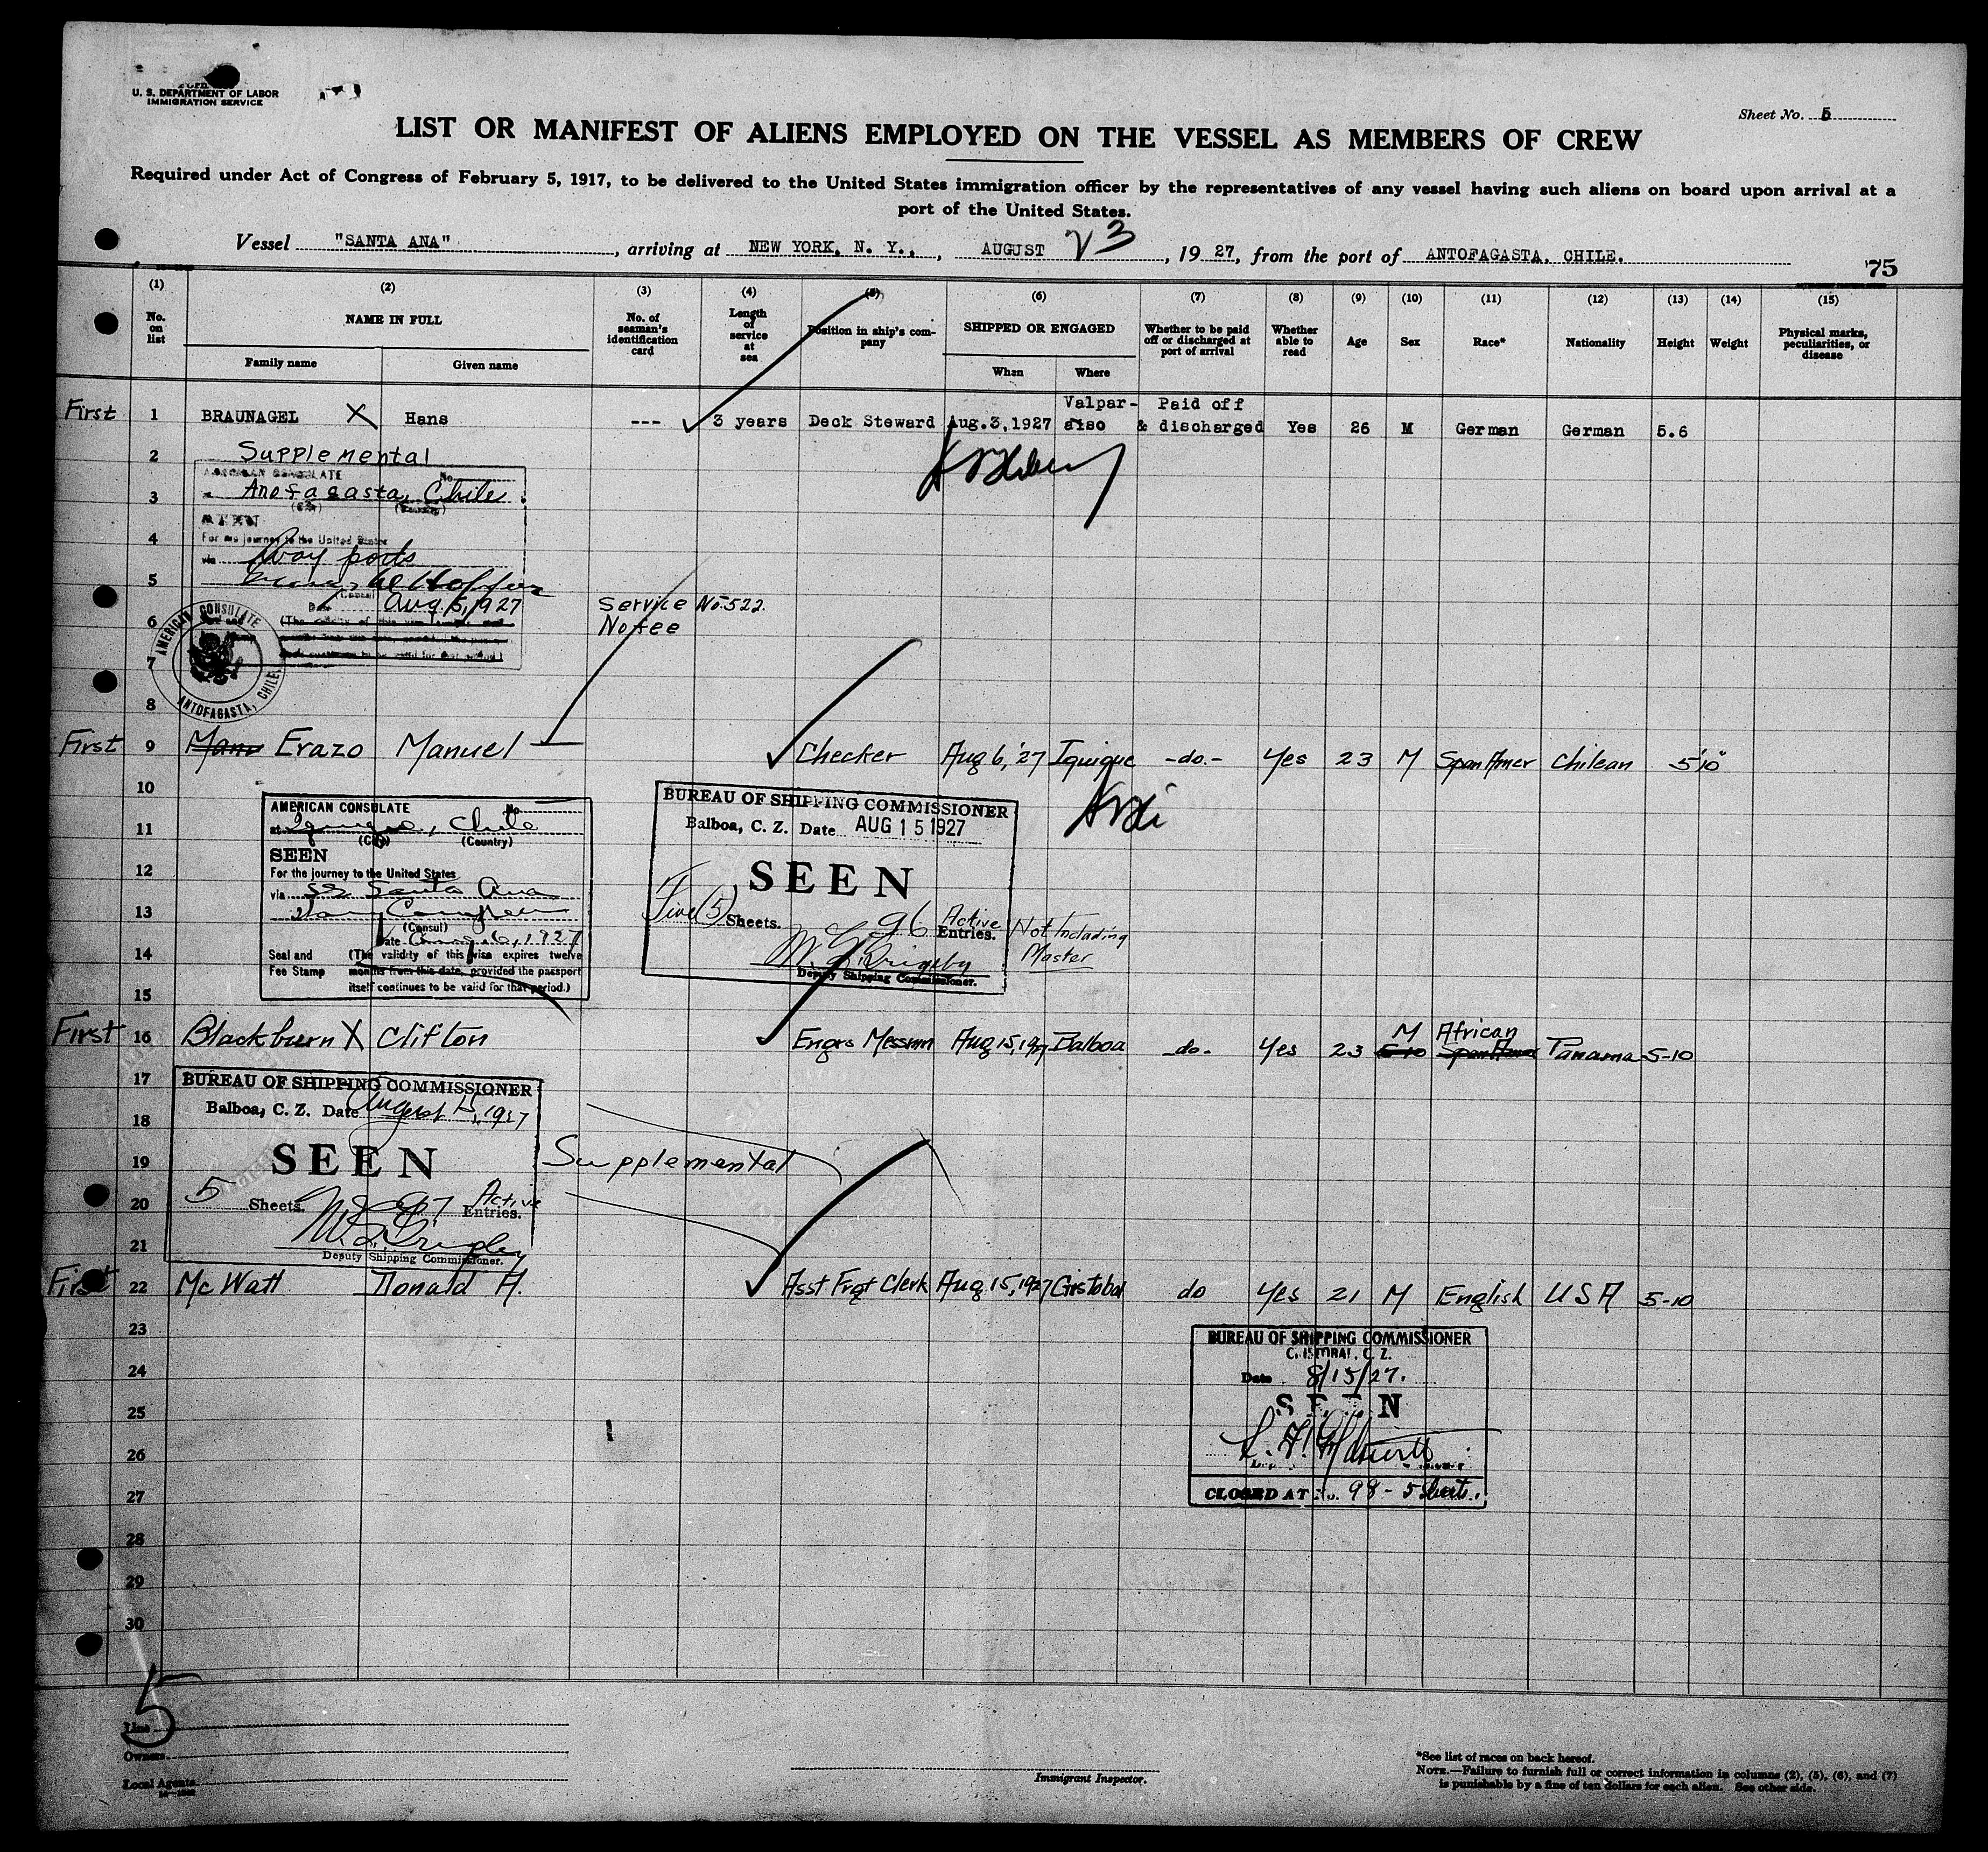 U. S. DEPARTMENT OF LABOR
IMMIGRATION SERVICE
Sheet No. 5
LIST OR MANIFEST OF ALIENS EMPLOYED ON THE VESSEL AS MEMBERS OF CREW
Required under Act of Congress of February 5, 1917, to be delivered to the United States immigration officer by the representatives of any vessel having such aliens on board upon arrival at a
port of the United States.
Vessel "SANTA ANA", arriving at NEW YORK, N. Y., AUGUST 23, 1927, from the port of ANTOFAGASTA. CHILE.
75
(1) (2) (3) (4) (5) (6) (7) (8) (9) (10) (11) (12) (13) (14) (15)
No. on list
NAME IN FULL
Family name
Given name
No. of seaman's identification card
Length of service at sea
Position in ship's company
SHIPPED OR ENGAGED
When
Where
Whether to be paid off or discharged at port of arrival
Whether able to read
Age
Sex
Race*
Nationality
Height
Weight
Physical marks, peculiarities, or disease
First 1 BRAUNAGEL X Hans --- 3 years Deck Steward Aug.3,1927 Valpar-aiso Paid off & discharged Yes 26 M German German 5.6
2 Supplemental
AMERICAN CONSULATE
No.
3 Anofagasta, Chile
4 For the journey to the United States
via Way ports
5
(Consul)
Date Aug. 5, 1927
6 Service No. 522.
No fee
AMERICAN CONSULATE
ANTOFAGASTA, CHILE.
7
8
First 9 Manu Erazo Manuel Checker Aug 6, '27 Iquique -do.- Yes 23 M Span Amer Chilean 5'10"
10
AMERICAN CONSULATE
No.
at Iquique, Chile
(City) (Country)
SEEN
For the journey to the United States
via SS Santa Ana
(Consul)
Date Aug. 6, 1927
Seal and Fee Stamp
(The validity of this visa expires twelve
months from this date, provided the passport
itself continues to be valid for that period.)
BUREAU OF SHIPPING COMMISSIONER
Balboa, C. Z. Date AUG 15 1927
SEEN
Five (5) Sheets. 96 Active Entries. Not Including Master
Deputy Shipping Commissioner.
11
12
13
14
15
First 16 Blackburn X Clifton Engrs Messmn Aug 15, 1927 Balboa -do- Yes 23 5-10 M Span Amer African Panama 5-10
17
BUREAU OF SHIPPING COMMISSIONER
Balboa, C. Z. Date August 15, 1927
18
SEEN
19 Supplemental
20 5 Sheets. 97 Active Entries.
21
Deputy Shipping Commissioner.
First 22 Mc Watt Donald A. Asst Frgt Clerk Aug. 15, 1927 Cristobal do Yes 21 M English USA 5-10
23
BUREAU OF SHIPPING COMMISSIONER
CRISTOBAL, C. Z.
24 Date 8/15/27.
25 SEEN
26
27 CLOSED AT No. 98 - 5 Sheets.
28
29
30
5
Line
Owners
Local Agents
Immigrant Inspector.
*See list of races on back hereof.
NOTE.—Failure to furnish full or correct information in columns (2), (5), (6), and (7)
is punishable by a fine of ten dollars for each alien. See other side.